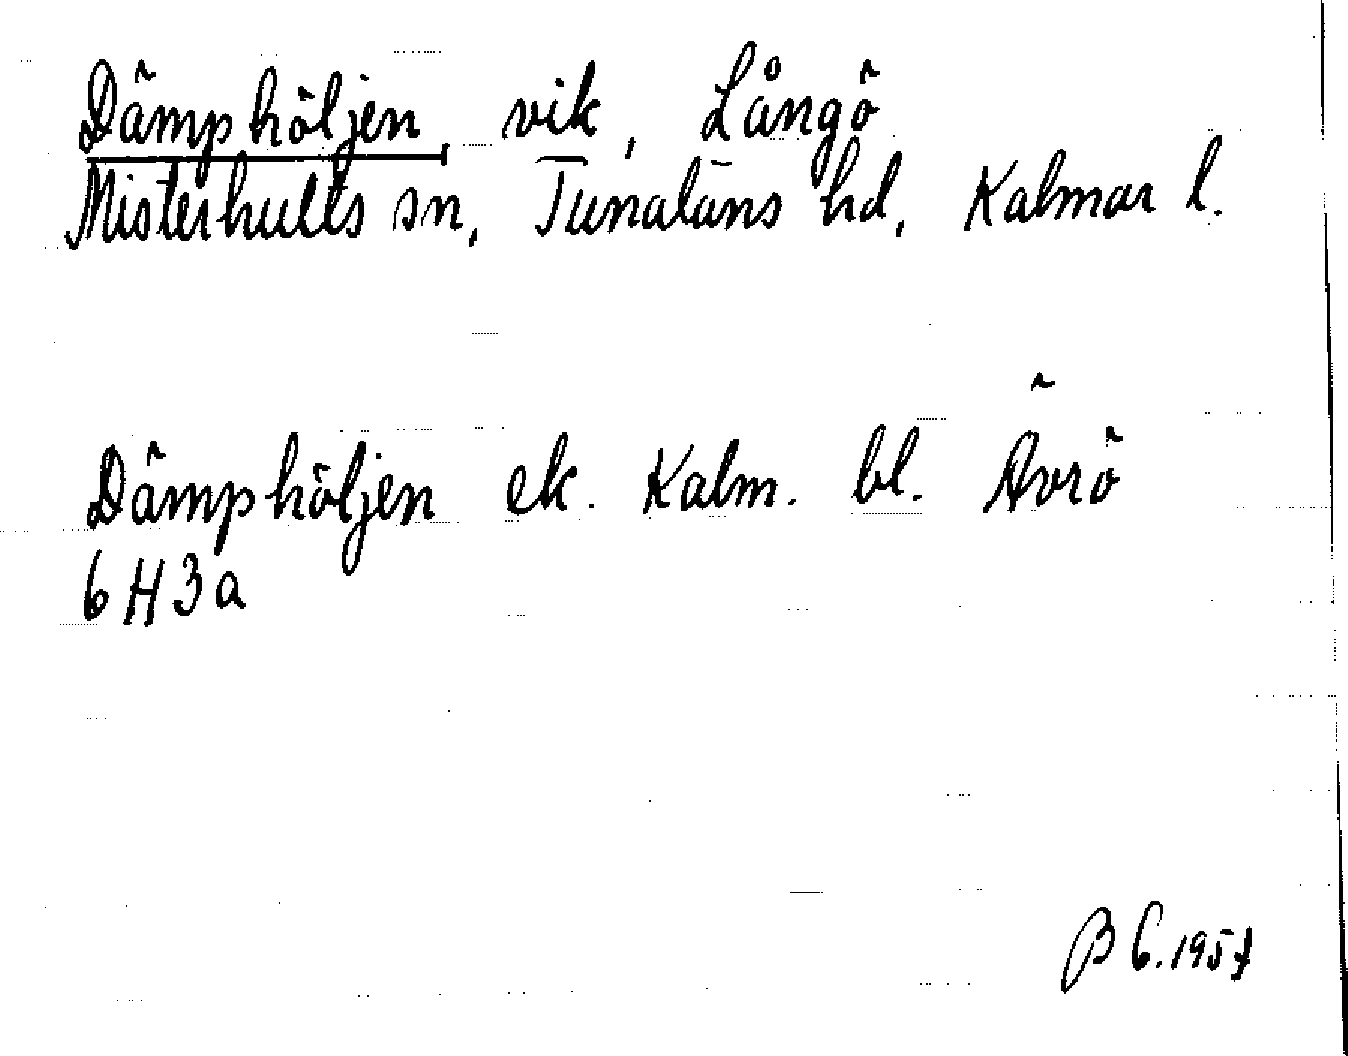 Dämphöljen, vik, Långö
Misterhults sn, Tunaläns hd, Kalmar l.
Dämphöljen ek. Kalm. bl. Ävrö
6H3a
B C. 1957